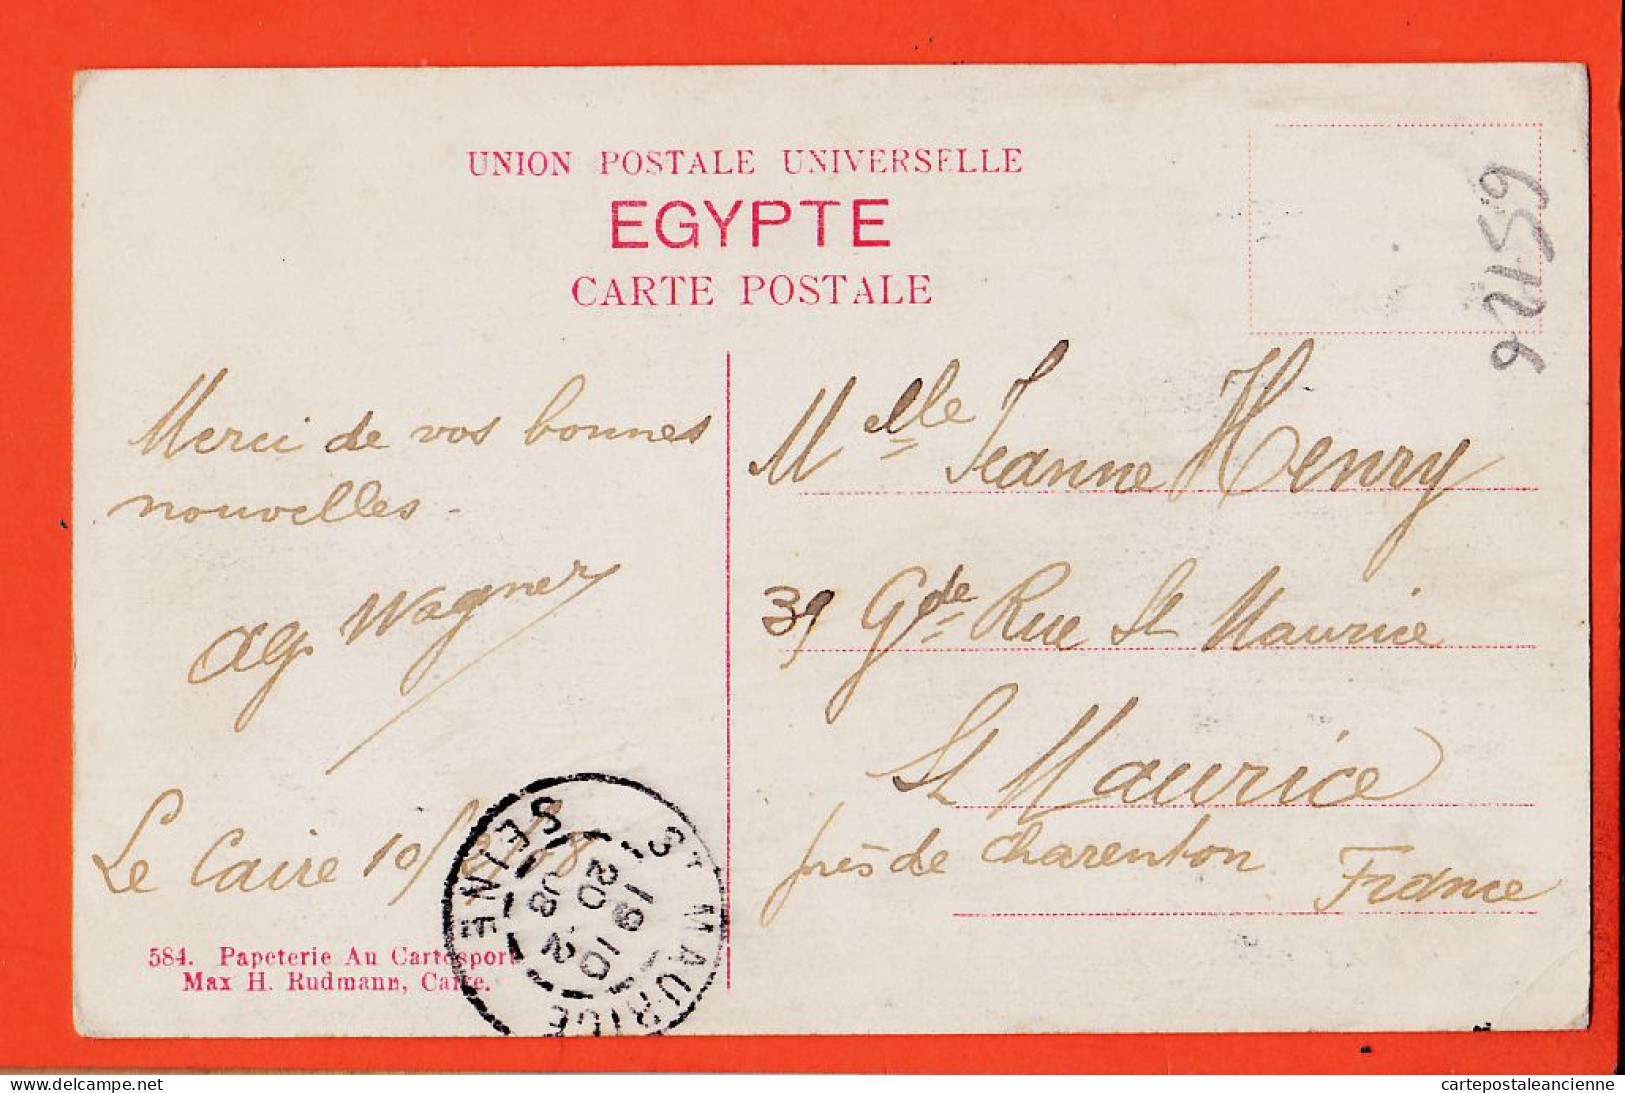 UNION POSTALE UNIVERSELLE
EGYPTE
CARTE POSTALE
Merci de vos bonnes
nouvelles -
Ag Wagner
Le Caire 10/2/08
584. Papeterie Au Cartosport
Max H. Rudmann, Caire.
Melle Jeanne Henry
39 Gde Rue St Maurice
St Maurice
près de Charenton
France
ST MAURICE
SEINE
19 10
20 -2
08
92159
cartepostaleancienne